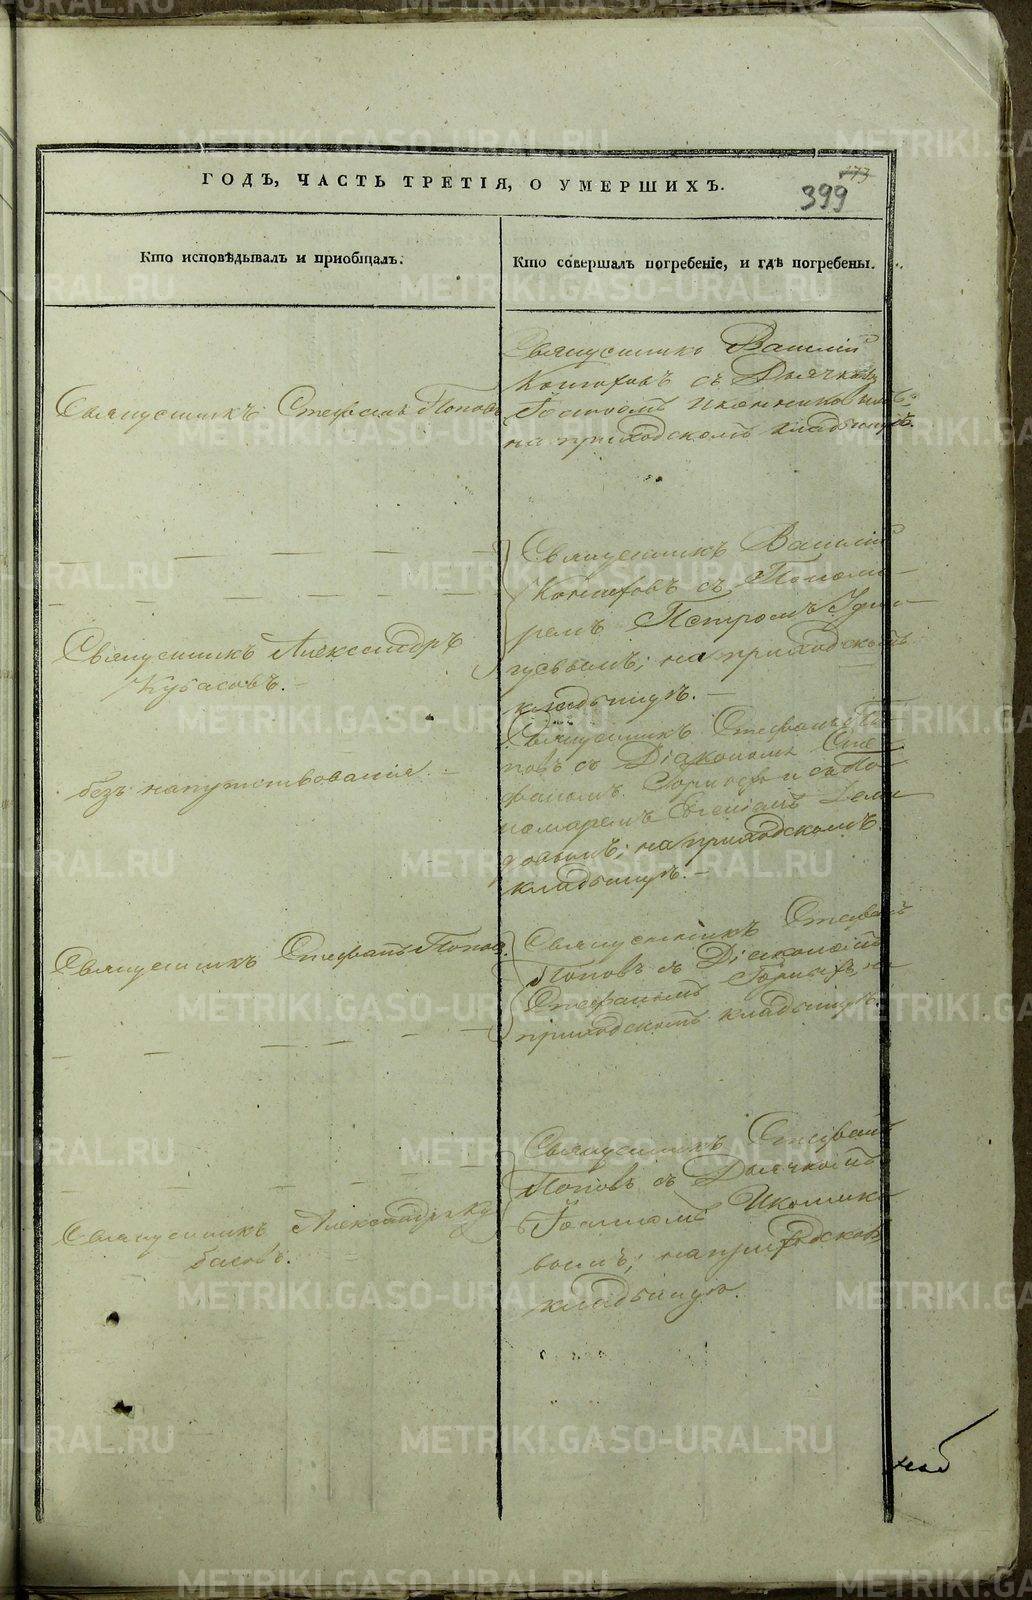 ГОДЪ, ЧАСТЬ ТРЕТІЯ, О УМЕРШИХЪ.
173
399
Кто исповѣдывалъ и пріобщалъ.
Кто совершалъ погребеніе, и гдѣ погребены.
Священникъ Стефанъ Поповъ
Священникъ Василій
съ Дьячкомъ
Іоанномъ Иконниковымъ
на приходскомъ кладбищѣ.
Священникъ Александръ
Кубасовъ.
Священникъ Василій
съ Понома-
ремъ Петромъ
на приходскомъ
кладбищѣ.
безъ напутствованія.
Священникъ Стефанъ По-
повъ съ Діакономъ Сте
фаномъ и съ По
номаремъ Евгеніемъ
на приходскомъ
кладбищѣ.
Священникъ Стефанъ Поповъ.
Священникъ Стефанъ
Поповъ съ Діакономъ
Стефаномъ на
приходскомъ кладбищѣ.
Священникъ Александръ Ку
басовъ.
Священникъ Стефанъ
Поповъ съ Дьячкомъ
Іоанномъ Иконнико
вымъ; на приходскомъ
кладбищѣ.
METRIKI.GASO-URAL.RU